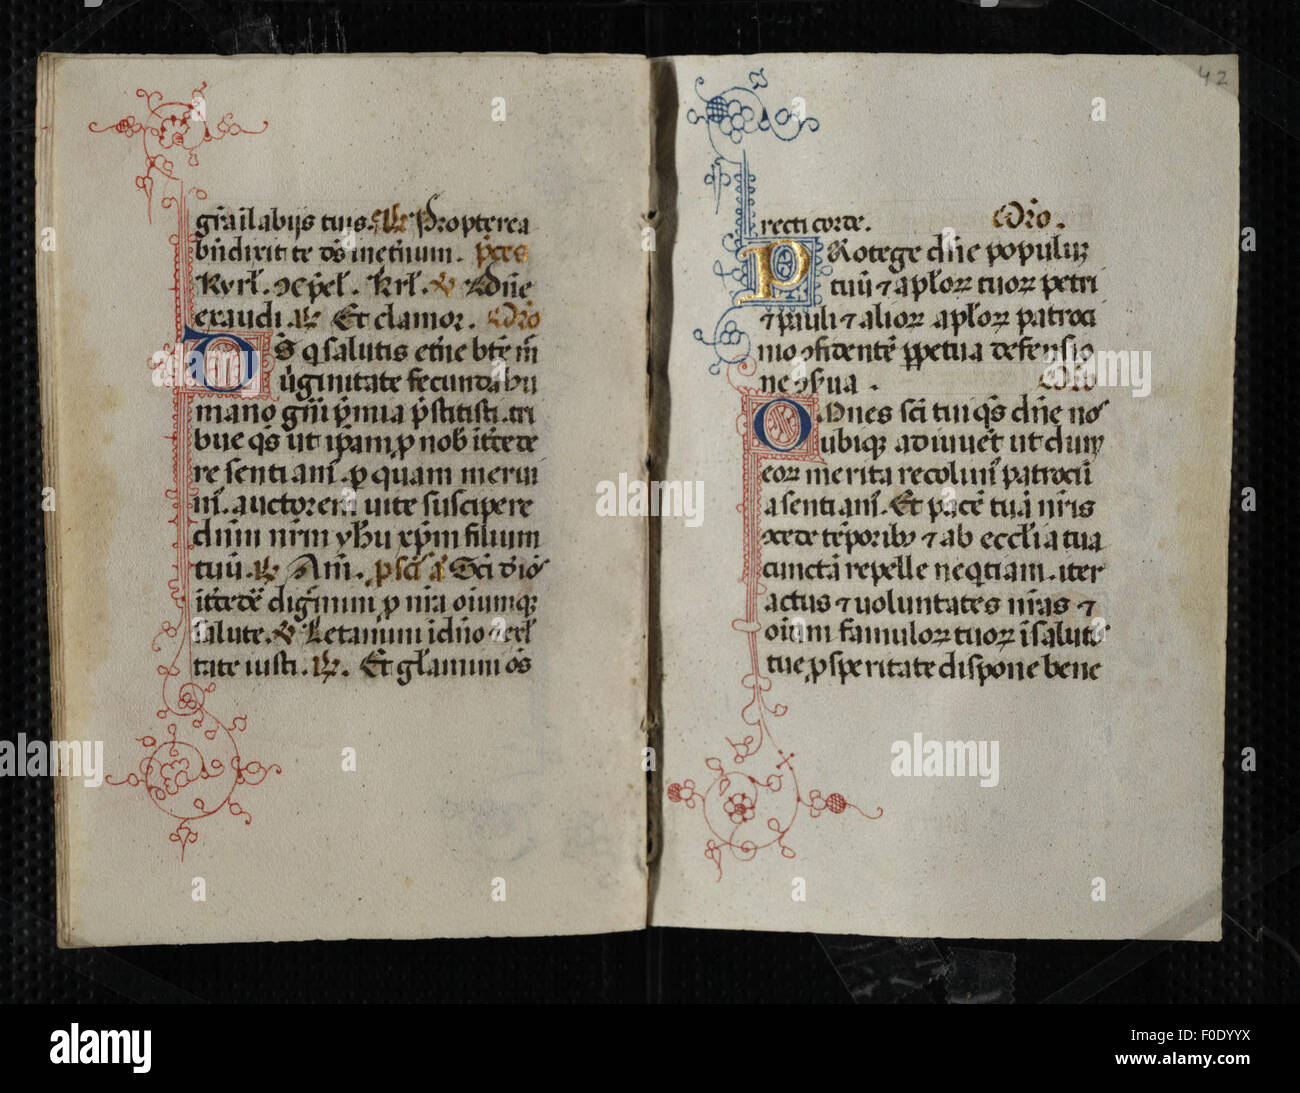 gr̄a ī labijs tuis. ℟ Propterea
bn̄dixit te ds̄ in et̄num. p̄ces
Kyrl̄. xp̄el̄. krl̄. ℣ Dn̄e
exaudi. ℟ Et clamor. Or̄o
DS̄ q̄ salutis et̄ne bt̄e m̄
v̄ginitate fecunda hu
mano gn̄i p̄mia p̄stitisti. tri
bue qs̄ ut ip̄am p nob̄ it̄cede
re sentiam̄. p quam merui
m̄. auctorem uite suscipere
dn̄m nr̄m yh̄u xp̄m filium
tuū. ℟ Am̄. p sc̄i a Sc̄i dei oēs
it̄ceděr dign̄mini p nr̄a oiumqꝫ
salute. ℣ Letamini ī dn̄o ⁊ exl̄
tate iusti. ℟. Et gl̄amini oēs
42
recti corde. Or̄o.
PRotege dn̄e populuꝫ
tuū ⁊ apl̄oꝝ tuoꝝ petri
⁊ pauli ⁊ alioꝝ apl̄oꝝ patroci
nio ꝯfidentē ꝑpetua defensio
ne ꝯs̄ua. Or̄o
OMnes sc̄i tui qs̄ dn̄e nos
ubiqꝫ adiuuet̄ ut duꝫ
eoꝝ merita recolim̄ patrociīa
sentiam̄. Et pacē tuā nr̄is
ꝯcede tēporibꝫ ⁊ ab eccl̄ia tua
cunctā repelle neqtiam. iter
actus ⁊ uoluntates nr̄as ⁊
oium famuloꝝ tuoꝝ ī salutis
tue ꝓsperitate dispone bene
alamy
Image ID: F0DYYX
www.alamy.com